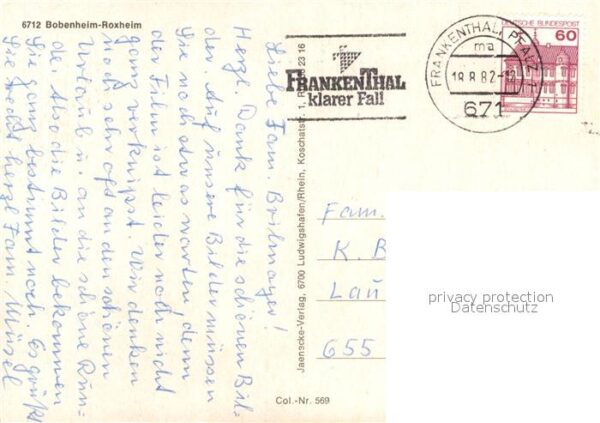 6712 Bobenheim-Roxheim
Liebe Fam. Brilmayer!
Herzl. Dank für die schönen Bil-
der. Auf unsere Bilder müssen
Sie noch etwas warten, denn
der Film ist leider noch nicht
ganz verknipst. Wir denken
noch sehr oft an den schönen
Urlaub u. an die schöne Run-
de. Also die Bilder bekommen
Sie ganz bestimmt noch. Es grüßt
Sie recht herzl. Fam. Müsel
Jaenscke-Verlag, 6700 Ludwigshafen/Rhein, Koschatstr. 1, 23 16
Col.-Nr. 569
FRANKENTHAL
klarer Fall
FRANKENTHAL, PFALZ
ma
18.8.82-12
671
DEUTSCHE BUNDESPOST
60
Fam.
K. B
Lau
655
privacy protection
Datenschutz